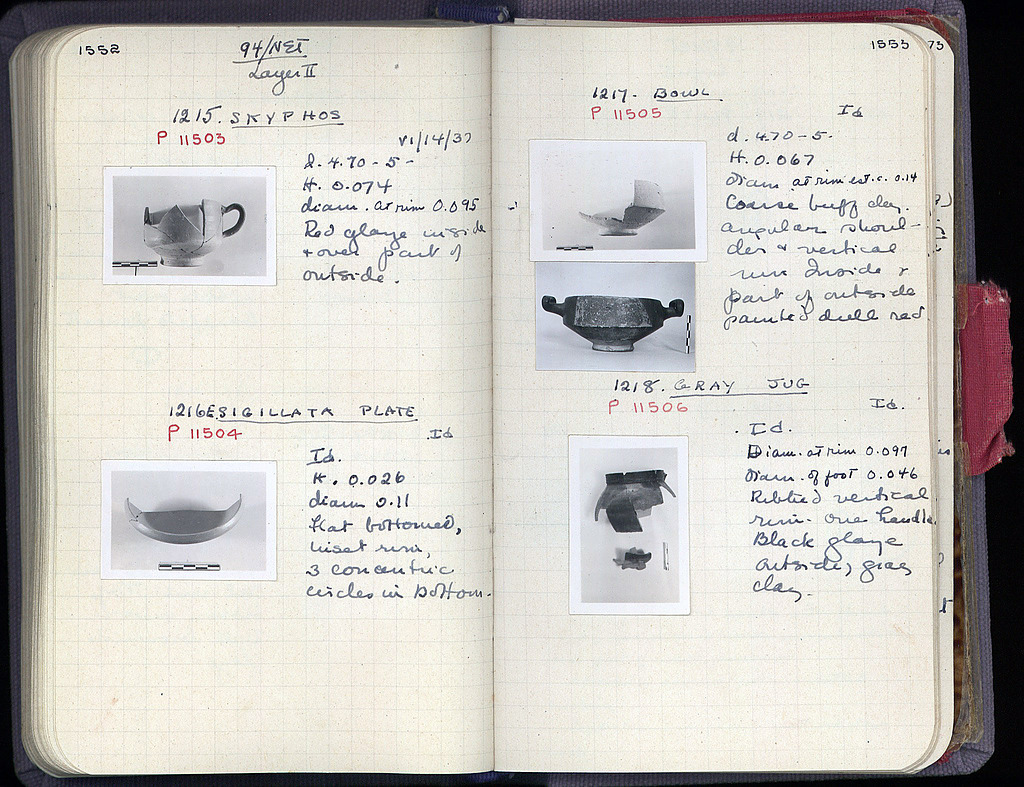 1552
94/ΝΣΤ
Layer II
1215. SKYPHOS
P 11503
VI/14/37
d. 4.70-5-
H. 0.074
diam. at rim 0.095
Red glaze inside
+ over part of
outside.
1216 E. SIGILLATA PLATE
P 11504
Id
Id.
H. 0.026
diam 0.11
flat bottomed,
inset rim,
3 concentric
circles in bottom.
1553
73
1217. BOWL
P 11505
Id
d. 4.70-5-
H. 0.067
Diam at rim est. c. 0.14
Coarse buff clay.
angular shoul-
der + vertical
rim Inside +
part of outside
painted dull red
1218. GRAY JUG
P 11506
Id.
Id.
Diam. at rim 0.097
Diam. of foot 0.046
Ribbed vertical
rim. one handle
Black glaze
outside, gray
clay.